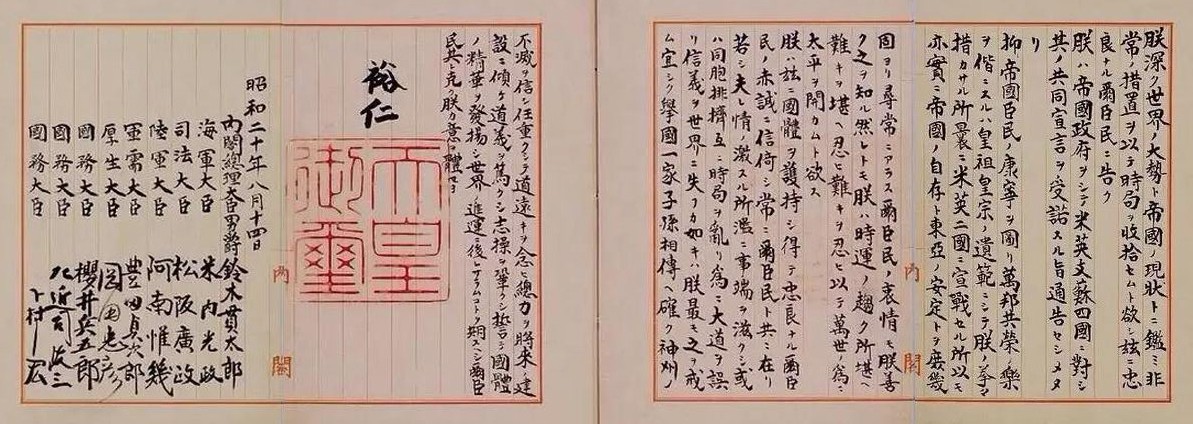 朕深ク世界ノ大勢ト帝國ノ現狀トニ鑑ミ非
常ノ措置ヲ以テ時局ヲ收拾セムト欲シ茲ニ忠
良ナル爾臣民ニ告ク
朕ハ帝國政府ヲシテ米英支蘇四國ニ對シ
其ノ共同宣言ヲ受諾スル旨通告セシメタ
リ
抑〻帝國臣民ノ康寧ヲ圖リ萬邦共榮ノ樂
ヲ偕ニスルハ皇祖皇宗ノ遺範ニシテ朕ノ拳〻
措カサル所曩ニ米英二國ニ宣戰セル所以モ
亦實ニ帝國ノ自存ト東亞ノ安定トヲ庶幾
内閣
固ヨリ尋常ニアラス爾臣民ノ衷情モ朕善
ク之ヲ知ル然レトモ朕ハ時運ノ趨ク所堪ヘ
難キヲ堪ヘ忍ヒ難キヲ忍ヒ以テ萬世ノ爲ニ
太平ヲ開カムト欲ス
朕ハ茲ニ國體ヲ護持シ得テ忠良ナル爾臣
民ノ赤誠ニ信倚シ常ニ爾臣民ト共ニ在リ
若シ夫レ情ノ激スル所濫ニ事端ヲ滋クシ或
ハ同胞排擠互ニ時局ヲ亂リ爲ニ大道ヲ誤
リ信義ヲ世界ニ失フカ如キハ朕最モ之ヲ戒
ム宜シク擧國一家子孫相傳ヘ確ク神州ノ
不滅ヲ信シ任重クシテ道遠キヲ念ヒ總力ヲ將來ノ建
設ニ傾ケ道義ヲ篤クシ志操ヲ鞏クシ誓テ國體
ノ精華ヲ發揚シ世界ノ進運ニ後レサラムコトヲ期スヘシ爾臣
民其レ克ク朕カ意ヲ體セヨ
裕仁
天皇
御璽
内閣
昭和二十年八月十四日
内閣總理大臣男爵 鈴木貫太郎
海軍大臣 米内光政
司法大臣 松阪廣政
陸軍大臣 阿南惟幾
軍需大臣 豊田貞次郎
厚生大臣 岡田忠彦
國務大臣 櫻井兵五郎
國務大臣 左近司政三
國務大臣 下村宏